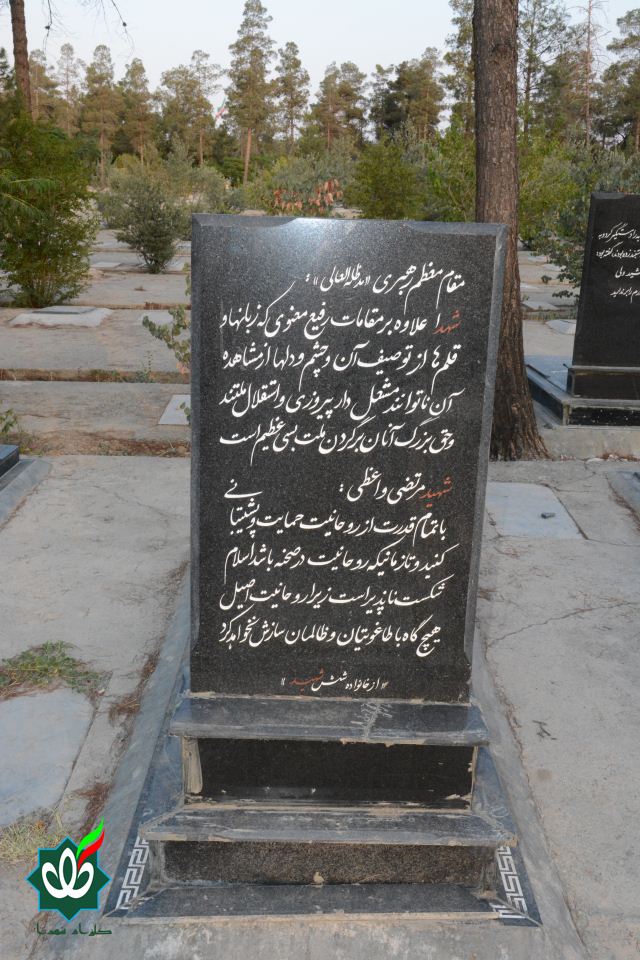 مقام معظم رهبری «مدظله‌العالی»:
شهدا علاوه بر مقامات رفیع معنوی که زبانها و
قلم‌ها از توصیف آن و چشم و دلها از مشاهده
آن ناتوانند مشعل دار پیروزی و استقلال ملتند
و حق بزرگ آنان بر گردن ملت بسی عظیم است
شهید مرتضی واعظی:
با تمام قدرت از روحانیت حمایت و پشتیبانی
کنید و تا زمانیکه روحانیت در صحنه باشد اسلام
شکست ناپذیر است زیرا روحانیت اصیل
هیچ گاه با طاغوتیان و ظالمان سازش نخواهد کرد
«از خانواده شش شهید»
گلزار شهدا